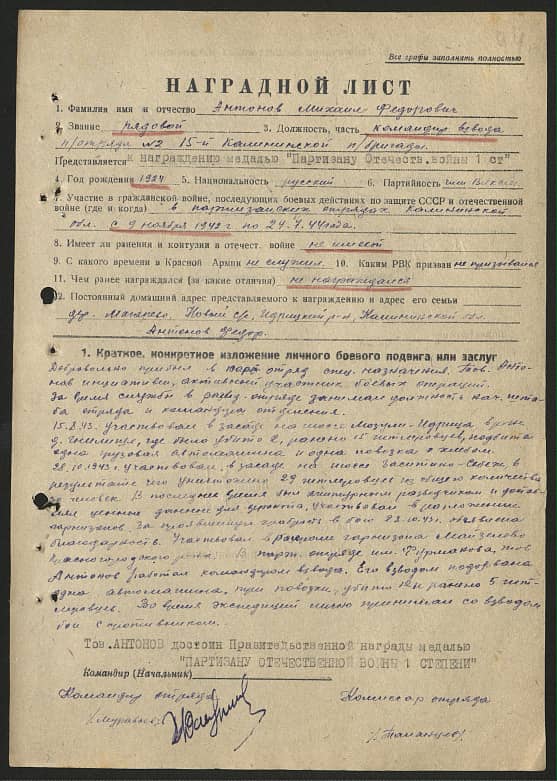 Все графы заполнять полностью
НАГРАДНОЙ ЛИСТ
1. Фамилия имя и отчество Антонов Михаил Федорович
2. Звание рядовой 3. Должность, часть командир взвода
п/отряда №2 15-й Калининской п/бригады
Представляется к награждению медалью "Партизану Отечеств.войны 1 ст"
4. Год рождения 1924 5. Национальность русский 6. Партийность член ВЛКСМ
7. Участие в гражданской войне, последующих боевых действиях по защите СССР и отечественной
войне (где и когда) в партизанских отрядах Калининской
обл. с 9 ноября 1942 г по 24.7.44 года.
8. Имеет ли ранения и контузии в отечест. войне не имеет
9. С какого времени в Красной Армии не служил 10. Каким РВК призван не призывался
11. Чем ранее награждался (за какие отличия) не награждался
12. Постоянный домашний адрес представляемого к награждению и адрес его семьи
дер. Новый с/с, Идрицкий р-н, Калининской обл.
Антонов Федор.
1. Краткое, конкретное изложение личного боевого подвига или заслуг
Добровольно прибыл в отряд спец. назначения. Тов. Анто-
нов инициативн, активный участник боевых операций.
За время службы в отряде занимал должность нач. шта-
ба отряда и командира отделения.
15.2.43. Участвовал в засаде на шоссе Мозули-Идрица в р-не
д. где было убито 2, ранено 15 гитлеровцев, подбита
одна грузовая автомашина и одна повозка с хлебом.
28.10.1943 г. участвовал в засаде на шоссе Заситино-Себеж, в
результате чего уничтожены 29 гитлеровцев из общего количества
человек В последнее время был агентурным разведчиком и достав-
лял ценные данные для фронта, участвовал в разложении
гарнизонов. За проявленную храбрость в бою объявлена
благодарность. Участвовал в разгроме гарнизона
Красногородского р-на. В парт. отряде им. Фурманова, тов
Антонов работал командиром взвода. Его взводом подорвана
одна автомашина, три повозки, убито и ранено 5 гит-
леровцев. Во время экспедиций лично принимал со взводом
бои с противником.
Тов. АНТОНОВ достоин Правительственной награды медалью
"ПАРТИЗАНУ ОТЕЧЕСТВЕННОЙ ВОЙНЫ 1 СТЕПЕНИ"
Командир (Начальник)
Командир отряда Комиссар отряда